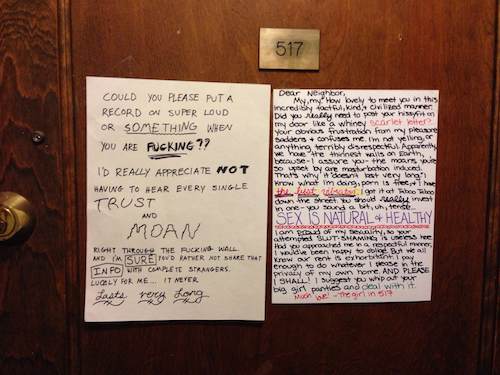 517
COULD YOU PLEASE PUT A
RECORD ON SUPER LOUD
OR SOMETHING WHEN
YOU ARE FUCKING??
I'D REALLY APPRECIATE NOT
HAVING TO HEAR EVERY SINGLE
TRUST
AND
MOAN
RIGHT THROUGH THE FUCKING WALL.
AND I'M SURE YOU'D RATHER NOT SHARE THAT
INFO WITH COMPLETE STRANGERS.
LUCKLY FOR ME... IT NEVER
Lasts very Long
Dear Neighbor,
My, my! How lovely to meet you in this
incredibly tactful, kind, & civilized manner.
Did you really need to post your hissyfit on
my door like a whiney scarlet letter?
Your obvious frustration from my pleasure
saddens & confuses me. I'm not yelling, or
anything terribly disrespectful. Apparently,
we have the thinnest walls on Earth,
because - I assure you - the moans you're
so upset by are masturbation induced.
That's why it "doesn't last very long". I
know what I'm doing, porn is free, & I have
the best vibrator. I got it at Taboo Taboo
down the street. You should really invest
in one - you sound a bit, uh, tense.
SEX IS NATURAL & HEALTHY
I am proud of my sexuality, so your
attempted SLUT-SHAMING is useless here.
Had you approached me in a respectful manner,
I would've been happy to oblige. But we all
know our rent is exhorbitant. I pay
enough to do whatever I please in the
privacy of my own home. AND PLEASE
I SHALL! I suggest you whip out your
big girl panties and deal with it.
Much love! - The girl in 517